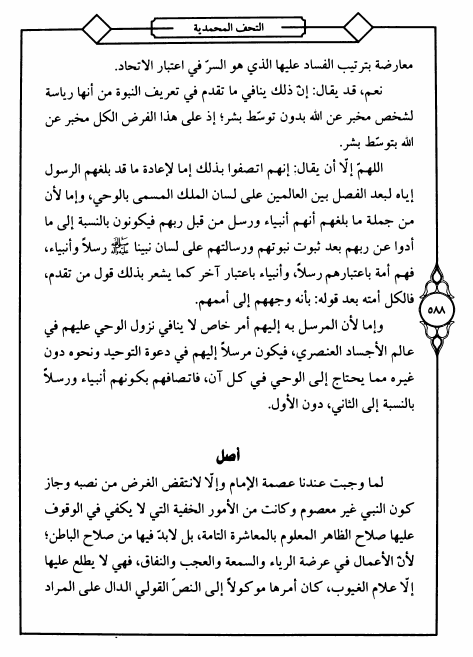 التحف المحمدية
معارضة بترتيب الفساد عليها الذي هو السرّ في اعتبار الاتحاد.
نعم، قد يقال: إنّ ذلك ينافي ما تقدم في تعريف النبوة من أنها رياسة
لشخص مخبر عن الله بدون توسّط بشر؛ إذ على هذا الفرض الكل مخبر عن
الله بتوسّط بشر.
اللهمّ إلّا أن يقال: إنهم اتصفوا بذلك إما لإعادة ما قد بلغهم الرسول
إياه لبعد الفصل بين العالمين على لسان الملك المسمى بالوحي، وإما لأن
من جملة ما بلغهم أنهم أنبياء ورسل من قبل ربهم فيكونون بالنسبة إلى ما
أدوا عن ربهم بعد ثبوت نبوتهم ورسالتهم على لسان نبينا ﷺ رسلاً وأنبياء،
فهم أمة باعتبارهم رسلاً، وأنبياء باعتبار آخر كما يشعر بذلك قول من تقدم،
فالكل أمته بعد قوله: بأنه وجههم إلى أممهم.
وإما لأن المرسل به إليهم أمر خاص لا ينافي نزول الوحي عليهم في
عالم الأجساد العنصري، فيكون مرسلاً إليهم في دعوة التوحيد ونحوه دون
غيره مما يحتاج إلى الوحي في كل آن، فاتصافهم بكونهم أنبياء ورسلاً
بالنسبة إلى الثاني، دون الأول.
٥٨٨
أصل
لما وجبت عندنا عصمة الإمام وإلّا لانتقض الغرض من نصبه وجاز
كون النبي غير معصوم وكانت من الأمور الخفية التي لا يكفي في الوقوف
عليها صلاح الظاهر المعلوم بالمعاشرة التامة، بل لابدّ فيها من صلاح الباطن؛
لأنّ الأعمال في عرضة الرياء والسمعة والعجب والنفاق، فهي لا يطلع عليها
إلّا علام الغيوب، كان أمرها موكولاً إلى النصّ القولي الدال على المراد